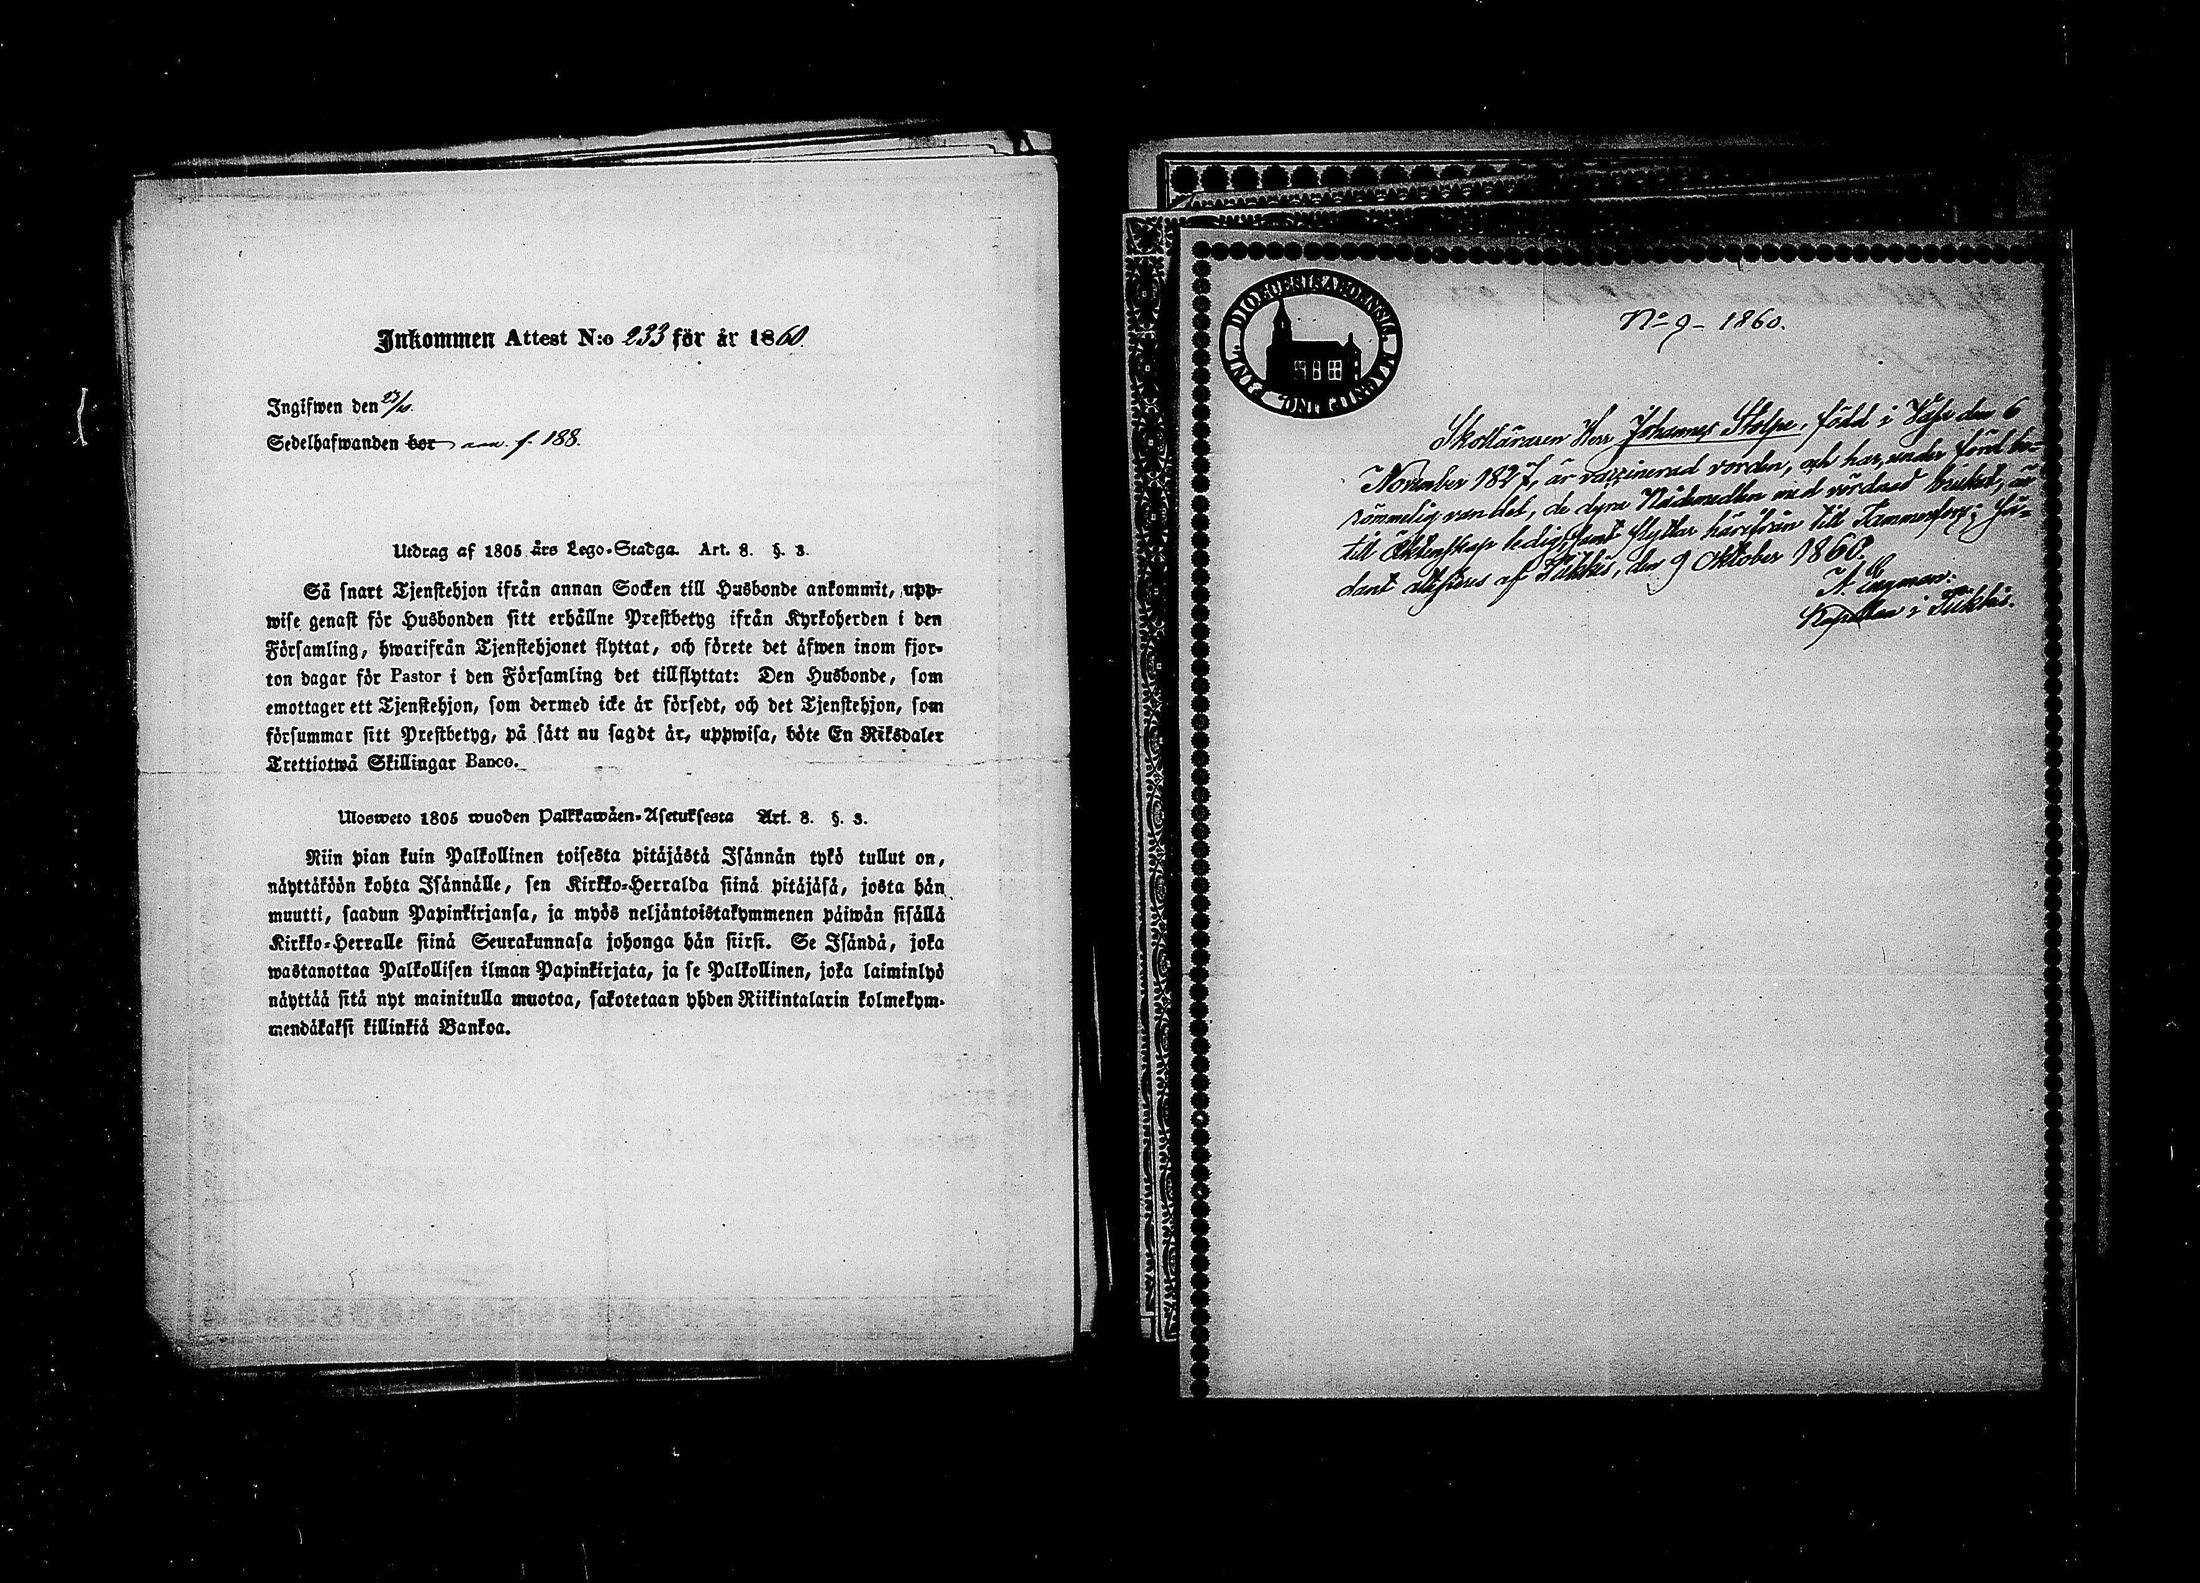 Inkommen Attest N:o 233 för år 1860.
Ingifwen den 23/10.
Sedelhafwanden bor ann. f. 188.
Utdrag af 1805 års Lego-Stadga. Art. 8. §. 3.
Så snart Tjenstehjon ifrån annan Socken till Husbonde ankommit, upp-
wise genast för Husbonden sitt erhållne Prestbetyg ifrån Kyrkoherden i den
Församling, hwarifrån Tjenstehjonet flyttat, och förete det äfwen inom fjor-
ton dagar för Pastor i den Församling det tillflyttat: Den Husbonde, som
emottager ett Tjenstehjon, som dermed icke är försedt, och det Tjenstehjon, som
försummar sitt Prestbetyg, på sätt nu sagdt är, uppwisa, böte En Riksdaler
Trettiotwå Skillingar Banco.
Ulosweto 1805 wuoden Palkkawäen-Asetuksesta Art. 8. §. 3.
Niin pian kuin Palkollinen toisesta pitäjästä Isännän tykö tullut on,
näyttäköön kohta Isännälle, sen Kirkko-Herralda siinä pitäjäsä, josta hän
muutti, saadun Papinkirjansa, ja myös neljäntoistakymmenen päiwän sisällä
Kirkko-Herralle siinä Seurakunnasa johonga hän siirsi. Se Isändä, joka
wastanottaa Palkollisen ilman Papinkirjata, ja se Palkollinen, joka laiminlyö
näyttää sitä nyt mainitulla muotoa, sakotetaan yhden Riikintalarin kolmekym-
mendäkaksi killinkiä Bankoa.
DIOECESIS ABOENSIS. MAGNI DUC. FINL.
No 9 - 1860.
Skolläraren Herr Johannes Stolpe, född i Wasa den 6
November 1827, är vaccinerad vorden, och har, under förd be-
römmelig vandel, de dyra Nådemedlen med vördnad brukat, är
till Äktenskap ledig, samt flyttar härifrån till Tammerfors; så-
dant attesteras af Tükkis, den 9 Oktober 1860.
A. Engman.
Kapellan i Tükkis.